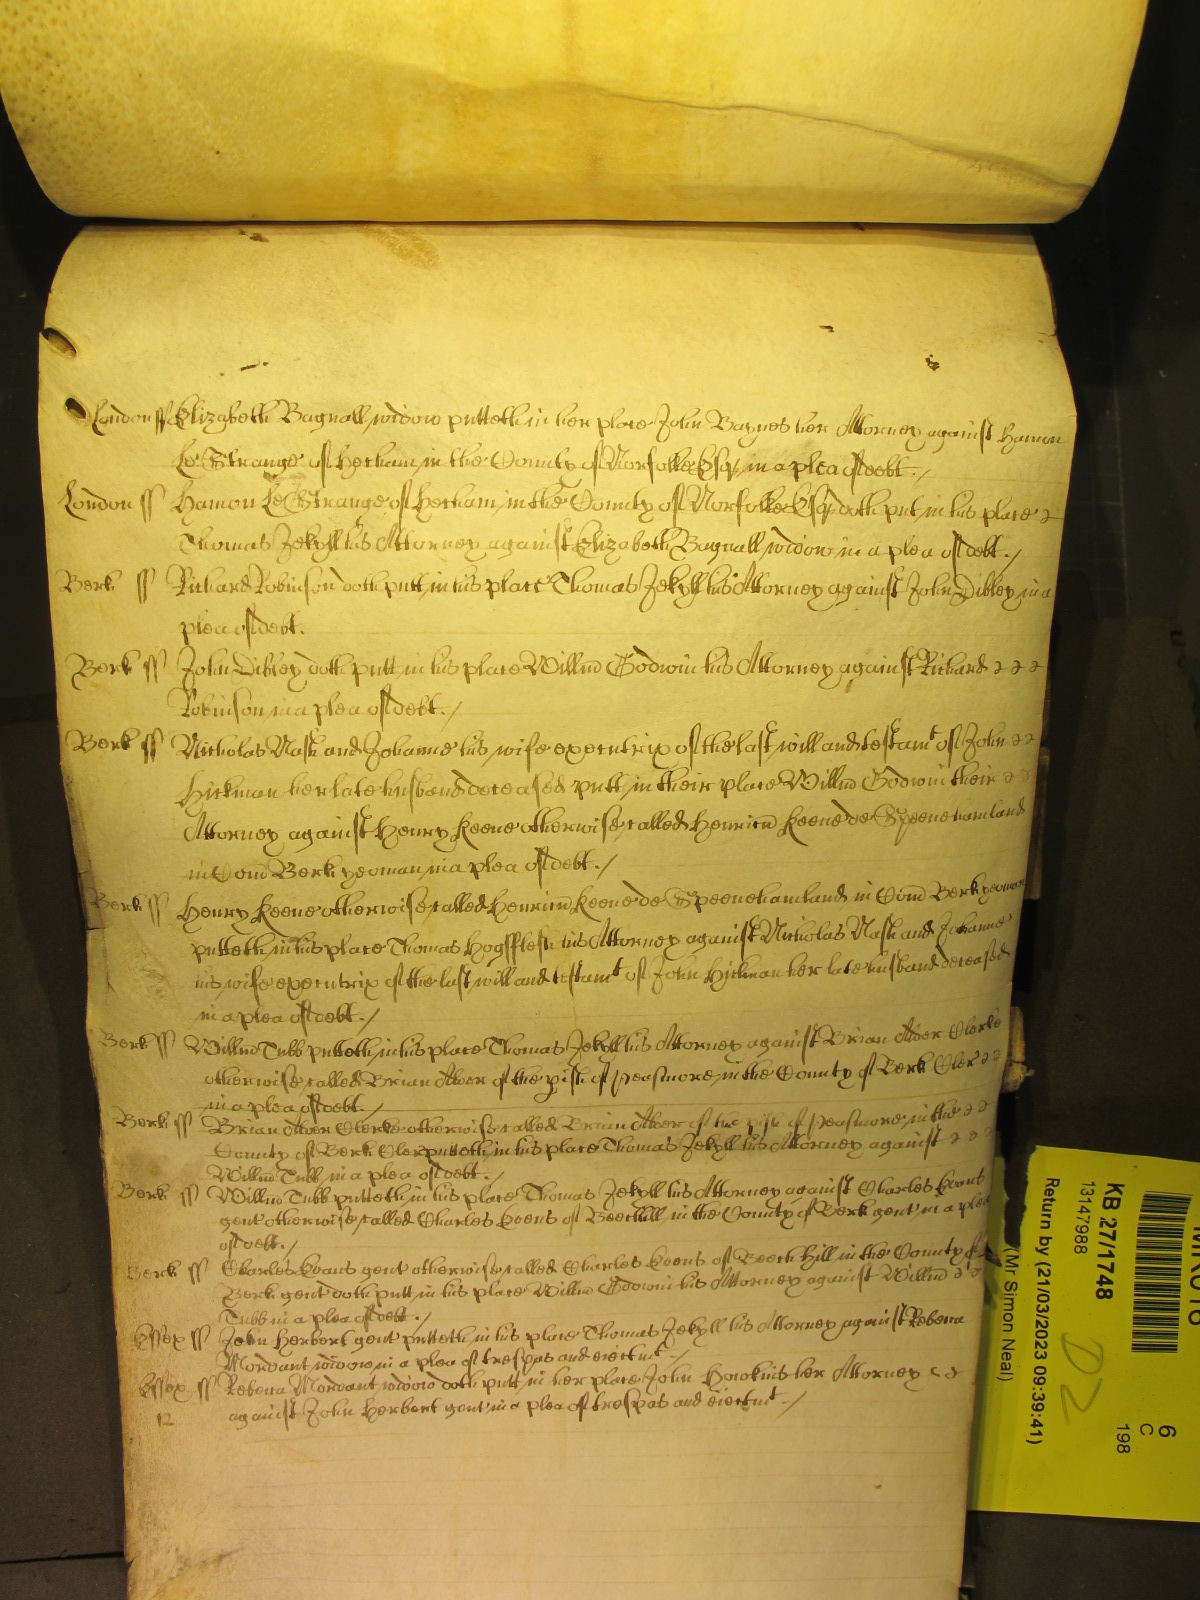 London ss Elizabeth Bagnall widow putteth in her place John Baynes her Attorney against Hamon
Le Strange of Hecham in the County of Norfolke Esqr in a plea of debt./
London ss Hamon Le Strange of Hecham in the County of Norfolke Esqr doth put in his place
Thomas Jekyll his Attorney against Elizabeth Bagnall widow in a plea of debt./
Berk ss Richard Robinson doth putt in his place Thomas Jekyll his Attorney against John Dibley in a
plea of debt.
Berk ss John Dibley doth putt in his place Willm Godwin his Attorney against Richard
Robinson in a plea of debt./
Berk ss Nicholas Nash and Johanne his wife executrix of the last will and testamt of John
Hickman her late husband deceased putt in their place Willm Godwin their
Attorney against Henry Keene otherwise called Henricu Keene de Speenehamland
in Com Berk yeoman in a plea of debt./
Berk ss Henry Keene otherwise called Henricu Keene de Speenehamland in Com Berk yeoman
putteth in his place Thomas Hogsflesh his Attorney against Nicholas Nash and Johanne
his wife executrix of the last will and testamt of John Hickman her late husband deceased
in a plea of debt./
Berk ss Willm Tubb putteth in his place Thomas Jekyll his Attorney against Brian Clerke
otherwise called Brian of the pish of Peasmore in the County of Berk Cler
in a plea of debt./
Berk ss Brian Clerke otherwise called Brian of the pish of Peasmore in the
County of Berk Cler putteth in his place Thomas Jekyll his Attorney against
Willm Tubb in a plea of debt./
Berk ss Willm Tubb putteth in his place Thomas Jekyll his Attorney against Charles Evans
gent otherwise called Charles Evens of Beechill in the County of Berk gent in a plea
of debt./
Berk ss Charles Evans gent otherwise called Charles Evens of Beech hill in the County of
Berk gent doth putt in his place Willm Godwin his Attorney against Willm
Tubb in a plea of debt./
Essex ss John Herbert gent putteth in his place Thomas Jekyll his Attorney against Rebecca
Mordant widow in a plea of trespas and eiectmt./
Essex ss Rebecca Mordant widow doth putt in her place John Hawkins her Attorney
against John Herbert gent in a plea of trespas and eiectmt./
12
KB 27/1748
13147988
Return by (21/03/2023 09:39:41)
(Mr Simon Neal)
6
C
198
D2